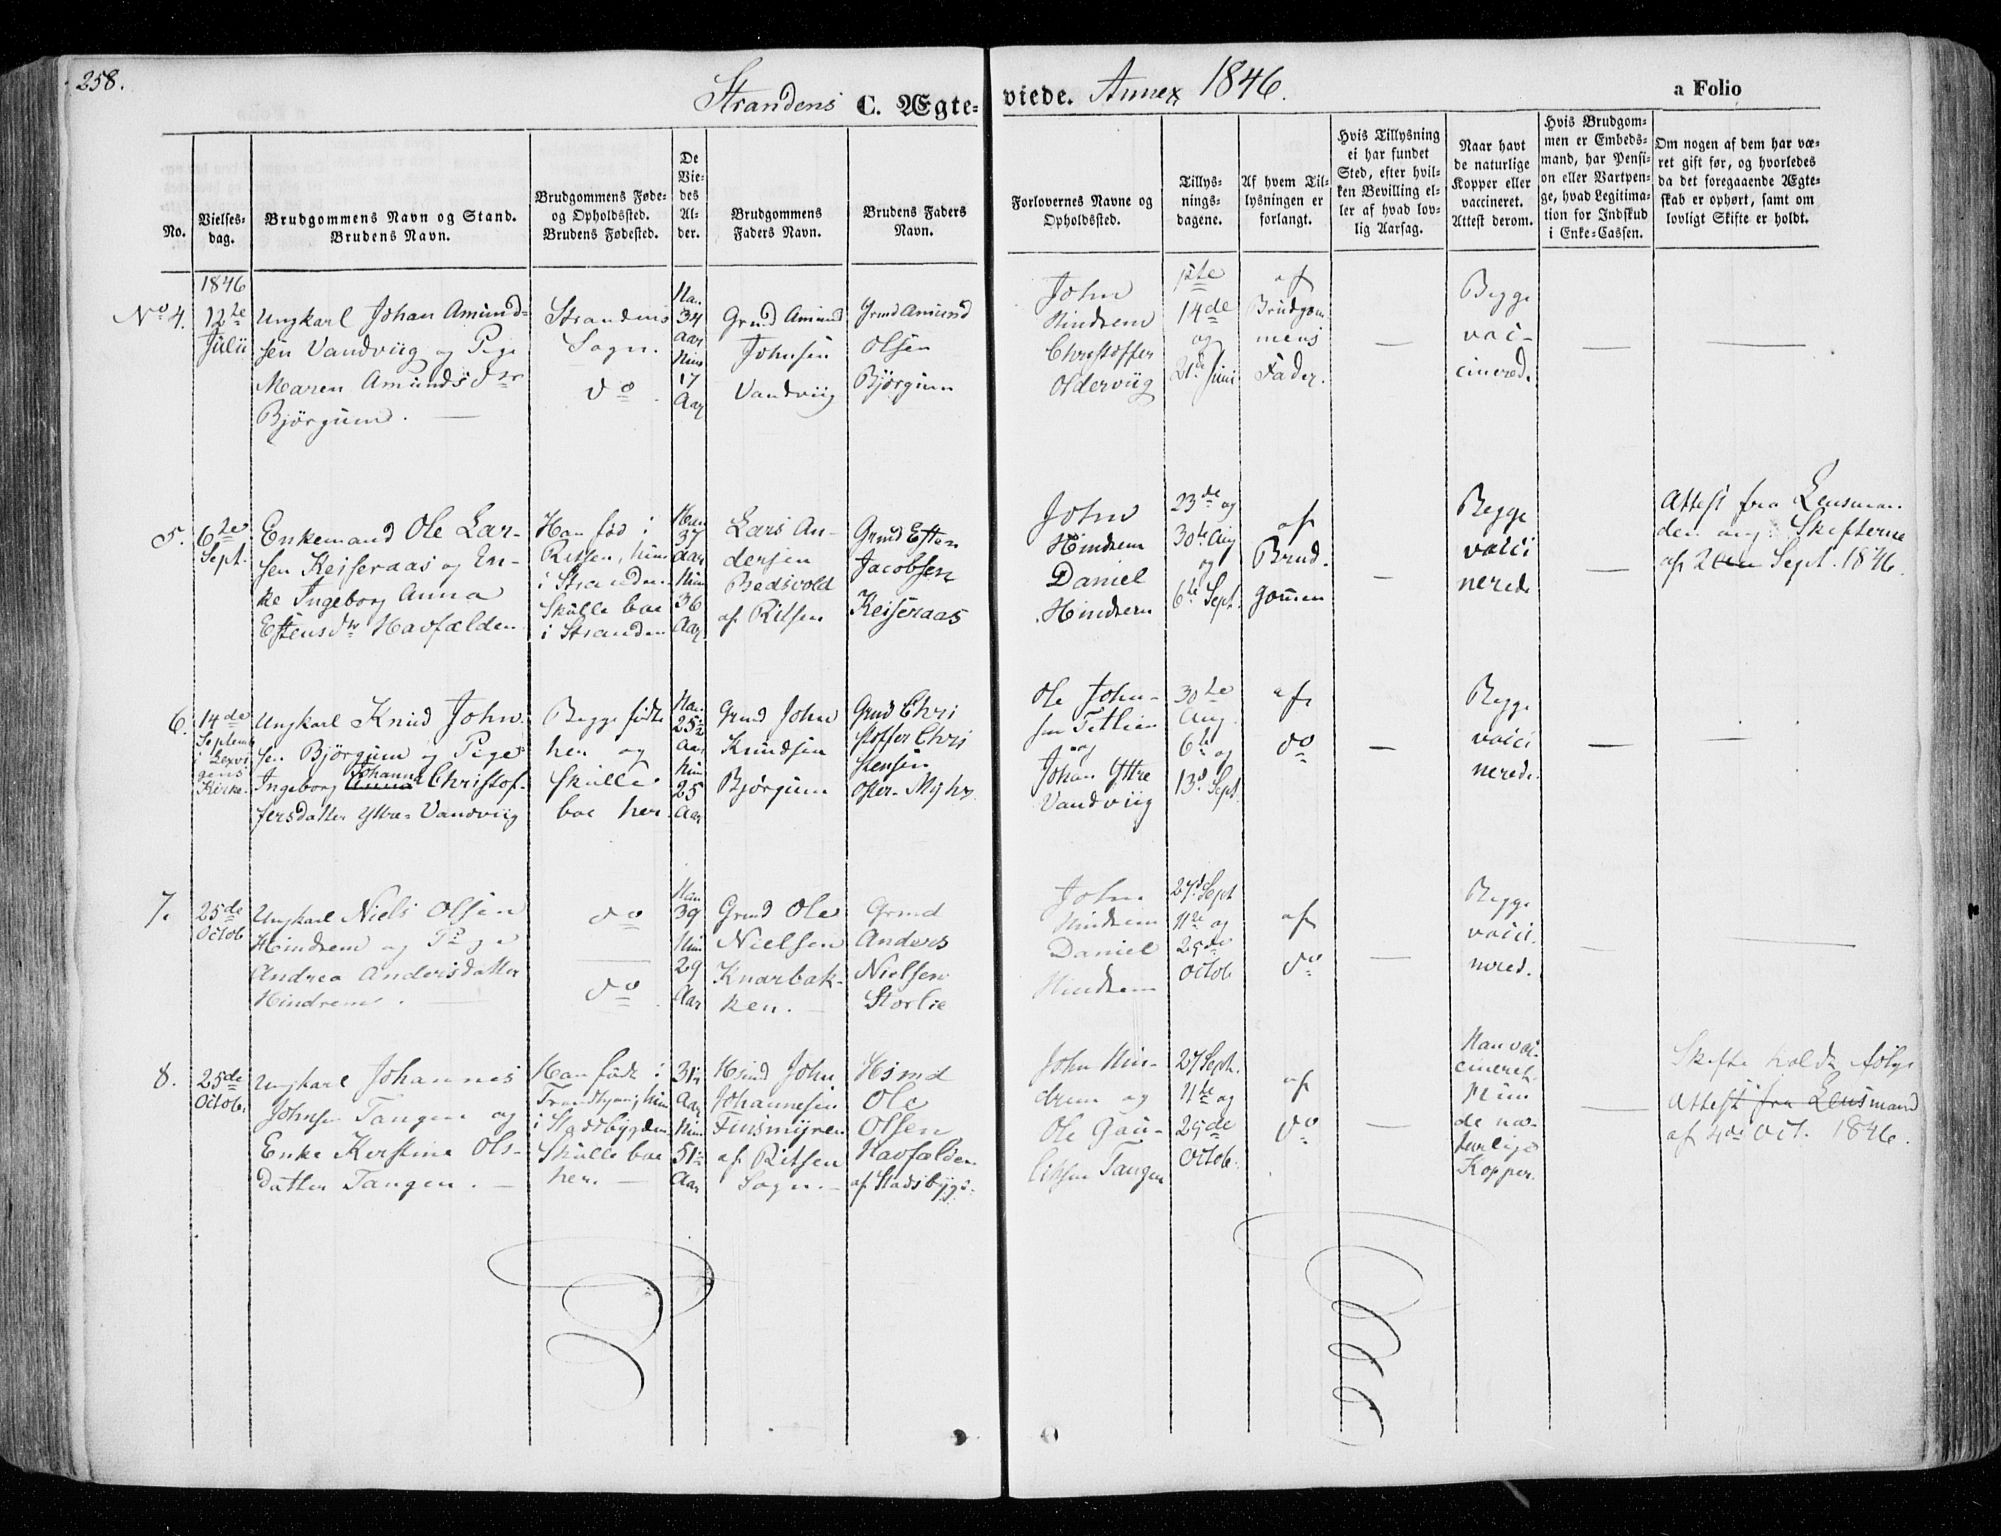 258.
Strandens C. Ægteviede. Annex 1846.
a Folio
No.
Vielses-
dag.
Brudgommens Navn og Stand.
Brudens Navn.
Brudgommens Føde-
og Opholdssted.
Brudens Fødested.
De
Vie-
des
Al-
der.
Brudgommens
Faders Navn.
Brudens Faders
Navn.
Forlovernes Navne og
Opholdssted.
Tillys-
nings-
dagene.
Af hvem Til-
lysningen er
forlangt.
Hvis Tillysning
ei har fundet
Sted, efter hvil-
ken Bevilling el-
ler af hvad lov-
lig Aarsag.
Naar havt
de naturlige
Kopper eller
vaccineret.
Attest derom.
Hvis Brudgom-
men er Embeds-
mand, har Pensi-
on eller Vartpen-
ge, hvad Legitima-
tion for Indskud
i Enke-Cassen.
Om nogen af dem har væ-
ret gift før, og hvorledes
da det foregaaende Ægte-
skab er ophørt, samt om
lovligt Skifte er holdt.
No 4.
1846
12te
Julii
Ungkarl Johan Amund-
sen Vandviig og Pige
Maren Amundsdtr
Bjørgum.
Strandens
Sogn.
do
Han
34
Aar
Hun
17
Aar
Grmd Amund
Johnsen
Vandviig
Grmd Amund
Olsen
Bjørgum
John
Hindrem
Christoffer
Olderviig
14de
og
21de Juni
af
Brudgom
mens
Fader.
Begge
vac-
cinerede
5.
6te
Sept.
Enkemand Ole Lar-
sen Keiseraas og En-
ke Ingeborg Anna
Eftensdtr Havfælden
Han fød i
Ritsen, hun
i Stranden
Skulle boe
i Stranden
Han
37
Aar
Hun
36
Aar
Lars An-
dersen
Bedsvold
af Ritsen
Grmd Eften
Jacobsen
Keiseraas
John
Hindrem
Daniel
Hindrem
23de og
30te Aug
og
6te Sept.
af
Brud-
gommen
Begge
vacci
nerede
Attest fra Lensman
den ang: Skifterne
af 2den Sept. 1846.
6.
14de
Septemb
i Lexvi
gens
Kirke.
Ungkarl Knud John
sen Bjørgum og Pige
Johanna
Ingeborg Anna Christof-
fersdatter Ytre Vandviig
Begge fødte
her og
Skulle
boe her
Han
25½
Aar
Hun
25
Aar
Grmd John
Knudsen
Bjørgum
Grmd Chri
stoffer Chri
stensen
Øster-Myhr
Ole John-
sen Tetlien
og
Johan Yttre
Vandviig
30te
Aug.
6te og
13d Sept.
af
do
Begge
vacci
nerede
7.
25de
Octob
Ungkarl Niels Olsen
Hindrem og Pige
Andrea Andersdatter
Hindrem.
do
do
Han
39
Hun
29
Aar
Grmd Ole
Nielsen
Knarbak-
ken.
Grmd
Anders
Nielsen
Storlie
John
Hindrem
Daniel
Hindrem
27d Sept
11te og
25de
Octob
af
do
Begge
vacci-
nered.
8.
25de
Octob.
Ungkarl Johannes
Johnsen Tangen og
Enke Kerstine Ols-
datter Tangen.
Han født i
Trondhjem, hun
i Stadsbygden
Skulle boe
her.
31½
Aar
Hun
51½
Aar
Hsmd John
Johannesen
Finsmyren
af Ritsen
Sogn.
Hsmd
Ole
Olsen
Havfælden
af Stadsbygd
John Hin-
drem og
Ole Gau-
litsen Tangen
27 Sept.
11te og
25de
Octob.
af
do
Han vac-
cineret
Hun
de na-
turlige
Kopper.
Skifte holdt følge
Attest fra Lensmand
af 4de Oct. 1846.